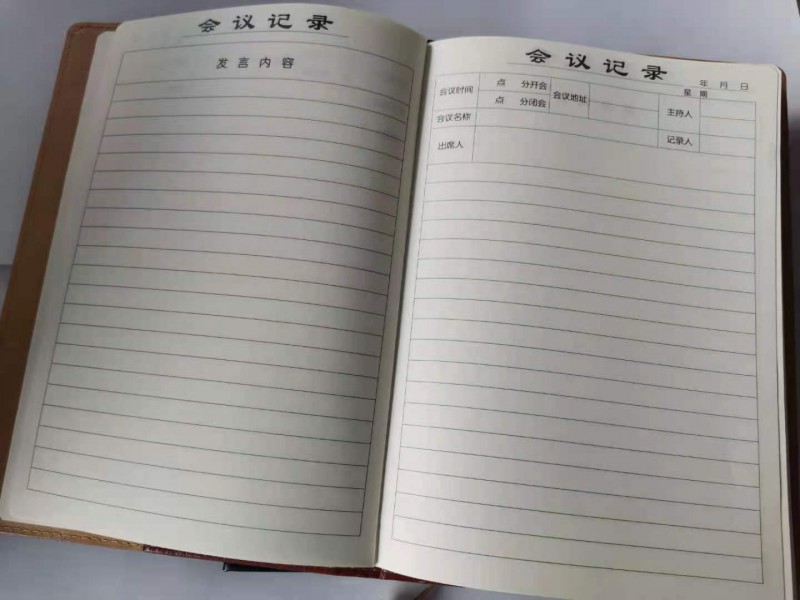 会议记录
发言内容
会议记录
年 月 日
星 期
会议时间 点 分开会 会议地址 主持人
点 分闭会
会议名称 记录人
出席人